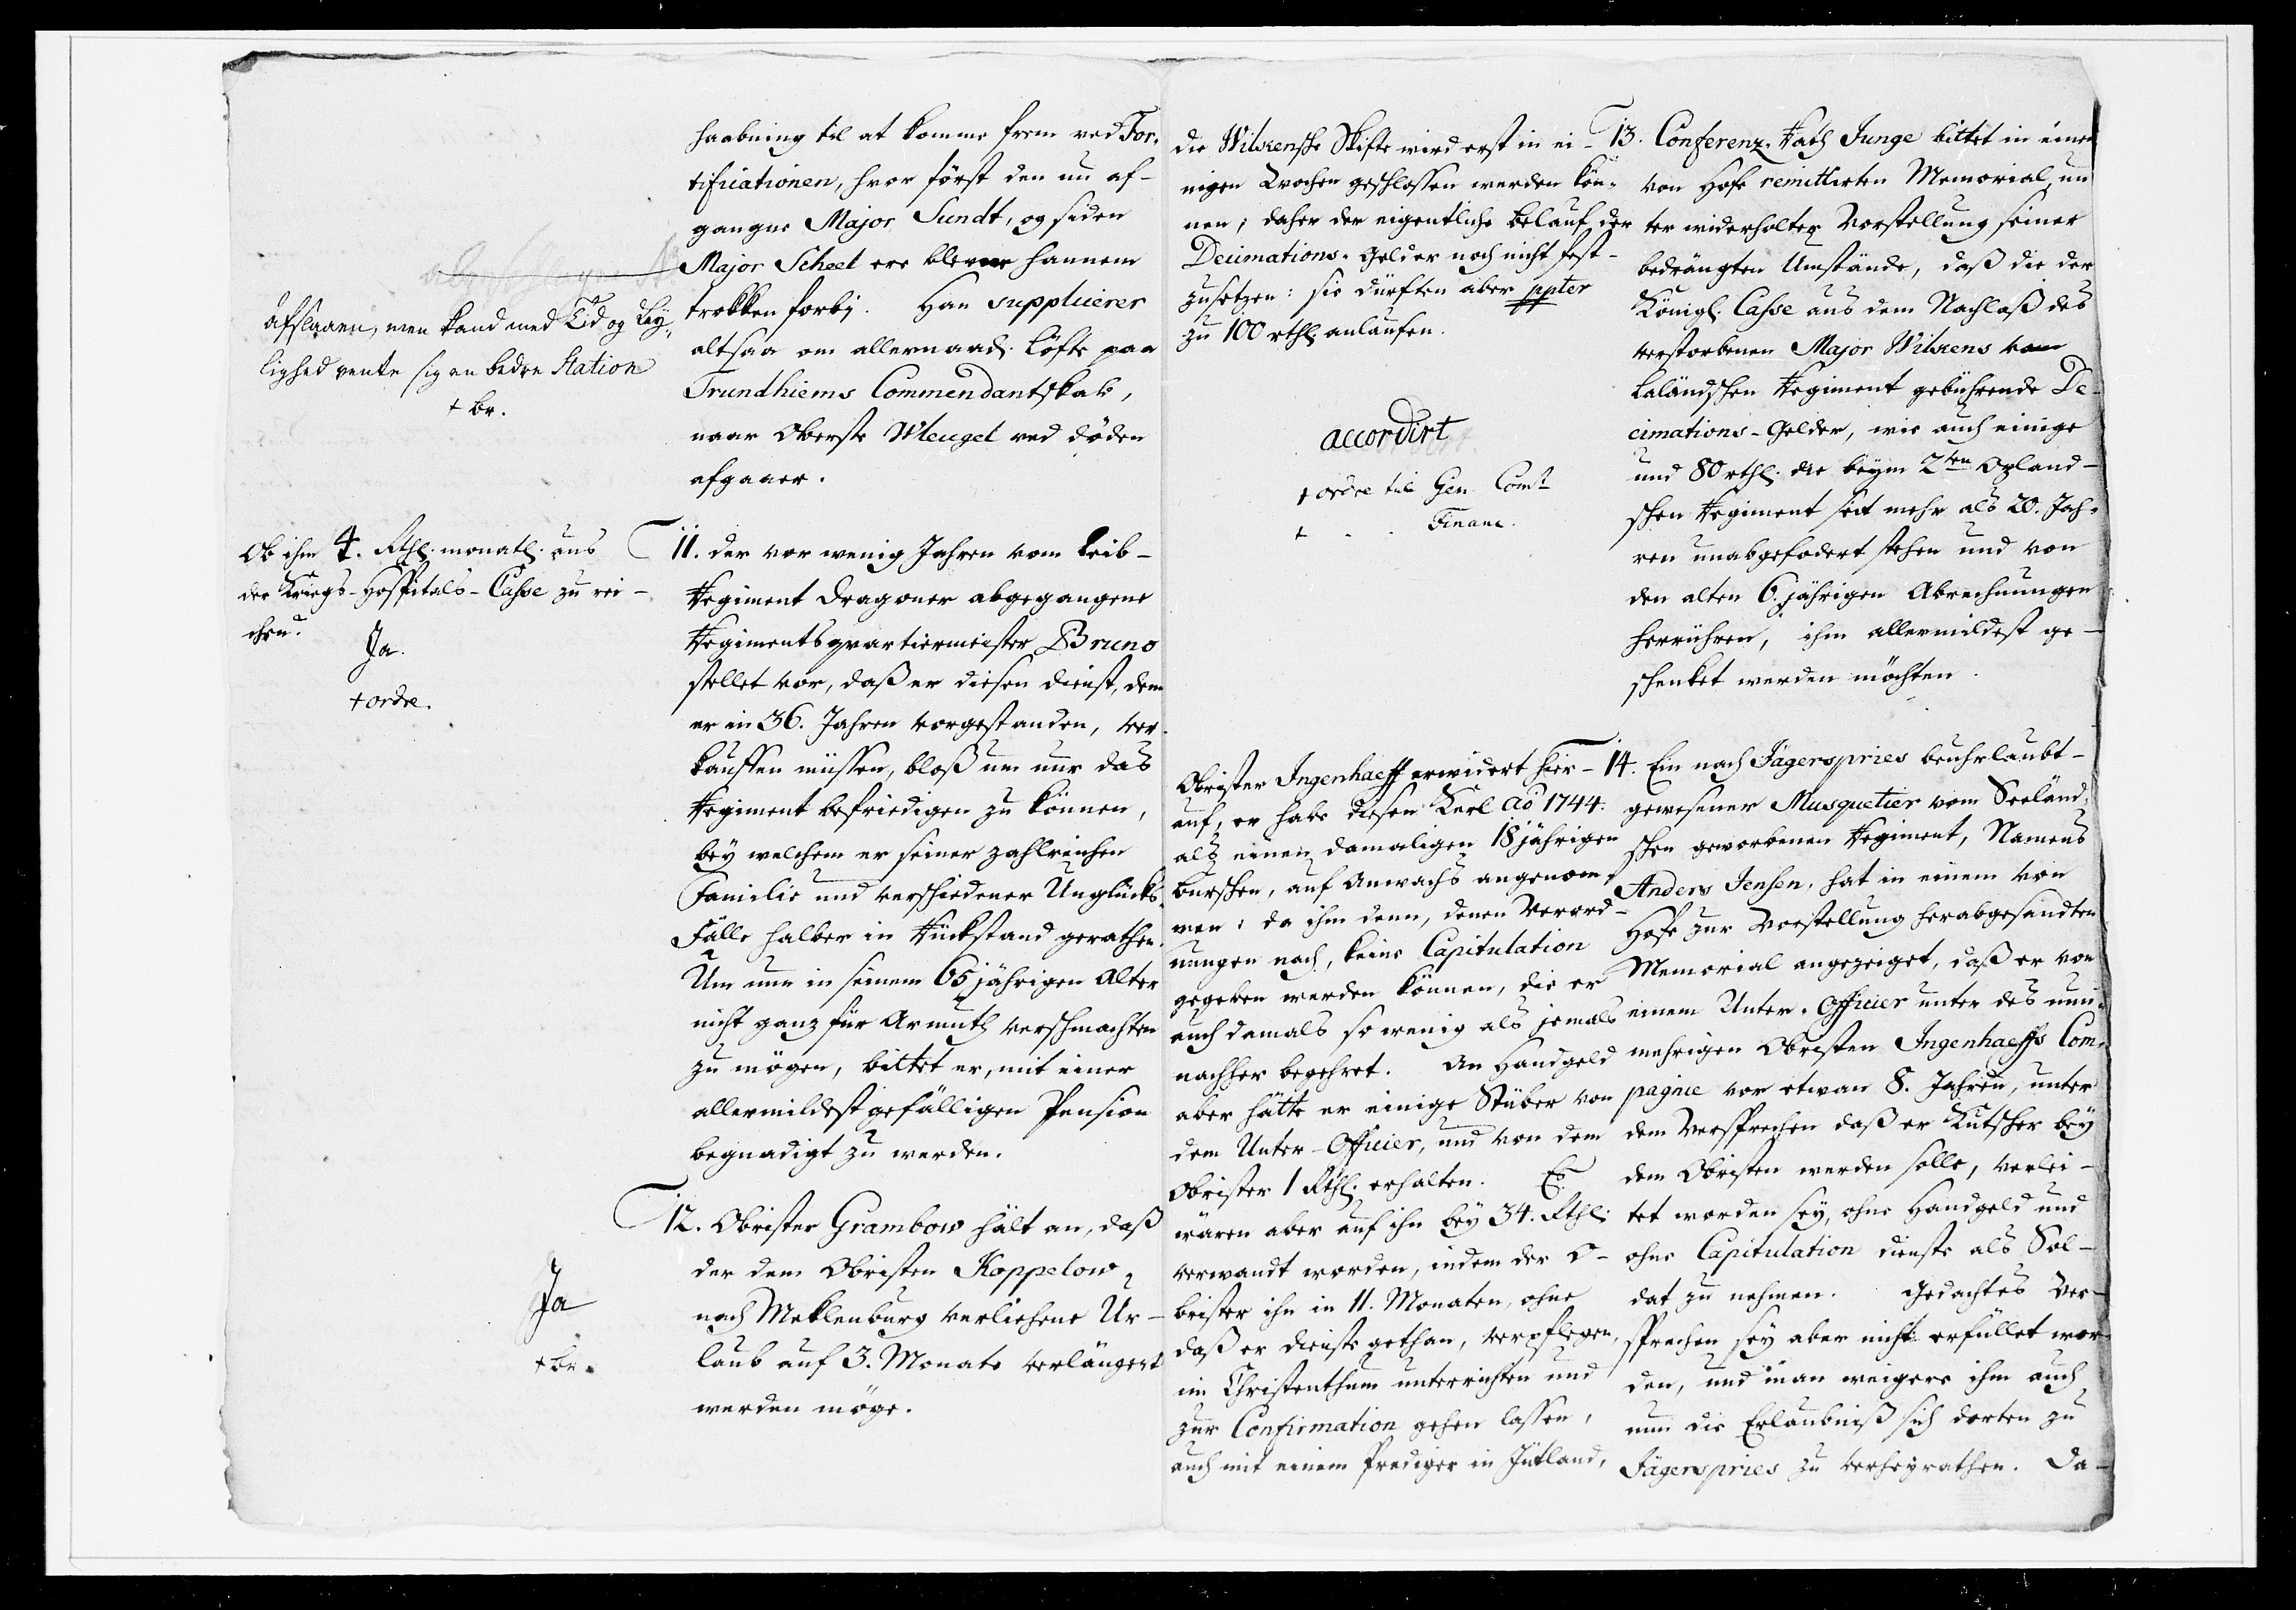 haabning til at komme frem ved For-
tificationen, hvor först den nu af-
gangne Major Sundt, og siden
Major Scheel ere blevne hannem
trokken forbj. Han supplicerer
altsaa om allernaad. Löfte paa
Trundhiems Commendantskab,
naar Oberste Wleugel ved döden
afgaaer.
afslaaen, men kand med Tid og Ley-
lighed vente sig en bedre Station
+ br.
11. Der vor wenig Jahren vom Leib-
Regiment Dragoner abgegangene
Regimentsquartiermeister Bruno
stellet vor, daß er diesen Dienst, dem
er in 36. Jahren vorgestanden, ver-
kauffen müssen, bloß um nur das
Regiment befriedigen zu können,
bey welchem er seiner zahlreichen
Familie und verschiedener Unglücks-
Fälle halber in Rückstand gerathen.
Um nun in seinem 65jährigen Alter
nicht ganz für Armuth verschmachten
zu mögen, bittet er, mit einer
allermildest gefälligen Pension
begnadigt zu werden.
Ob ihm 4. Rthl. monatl. aus
der Kriegs-Hospitals-Casse zu rei-
chen?
Ja.
+ ordre.
12. Obrister Grambow hält an, daß
der dem Obristen Koppelow
nach Meklenburg verliehene Ur-
laub auf 3. Monate verlängert
werden möge.
Ja
+ br.
13. Conferenz-Rath Junge bittet in einem
von Hofe remittirten Memorial, un
ter widerholter Vorstellung seiner
bedrängten Umstände, daß die der
Königl. Casse aus dem Nachlaß des
verstorbenen Major Wilkens vom
Laländschen Regiment gebührende De-
cimations-Gelder, wie auch einige
und 80 rthl. die beym 2ten Opland-
schen Regiment seit mehr als 20. Jah-
ren unabgefodert stehen und von
den alten 6.jährigen Abrechnungen
herrühren, ihm allermildest ge-
schenket werden möchten.
die Wilkensche Skifte wird erst in ei-
nigen Wochen geschlossen werden kön-
nen; daher der eigentliche Belauf der
Decimations-Gelder noch nicht fest-
zusetzen: sie dürften aber ppter
zu 100 rthl. anlaufen.
accordirt
+ ordre til Gen. Comt
+ - - Financ.
14. Ein nach Jägerspries beuhrlaubt-
gewesener Musquetier vom Seeländ-
schen geworbenen Regiment, Namens
Anders Jensen, hat in einem von
Hofe zur Vorstellung herabgesandten
Memorial angezeiget, daß er von
einem Unter-Officier unter des nun-
mehrigen Obristen Ingenhaeffs Com-
pagnie vor etwan 8. Jahren, unter
dem Versprechen daß er Kutscher bey
dem Obristen werden solle, verlei-
tet worden sey, ohne Handgeld und
ohne Capitulation dienste als Sol-
dat zu nehmen. Gedachtes Ver-
sprechen sey aber nicht erfüllet wor-
den, und man weigere ihm auch
nun die Erlaubniß sich dorten zu
Jägerspries zu verheyrathen. Da-
Obrister Ingenhaeff erwidert hier-
auf, er habe diesen Kerl Ao 1744.
als einen damaligen 18jährigen
Burschen, auf Anwachs angenom-
men: da ihm denn, denen Verord-
nungen nach, keine Capitulation
gegeben werden können, die er
auch damals so wenig als jemals
nachher begehret. An Handgeld
aber hätte er einige Stüber von
dem Unter-Officier, und von dem
Obrister 1 Rthl. erhalten. Es
wären aber auf ihn bey 34. Rthl.
verwandt worden, indem der O-
brister ihn in 11. Monaten, ohne
daß er dienste gethan, verpflegen,
im Christenthum unterrichten und
zur Confirmation gehen lassen,
auch mit einem Prediger in Jütland,